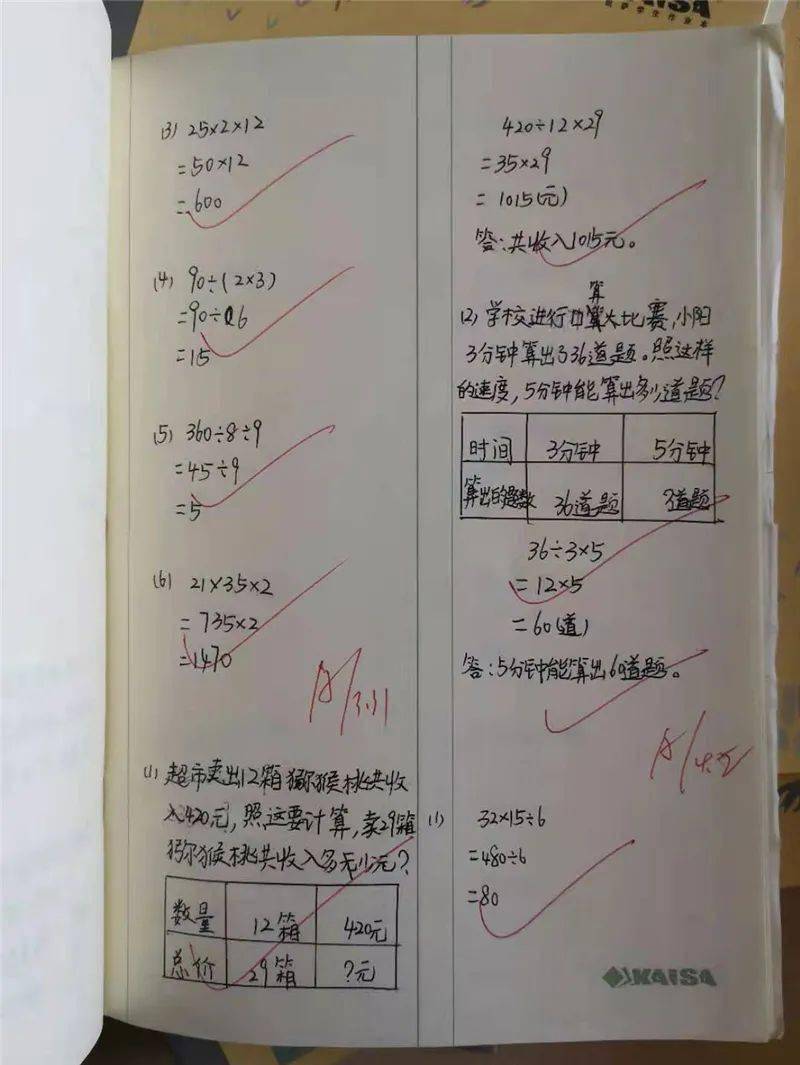 (3) 25×2×12
=50×12
=600
(4) 90÷(2×3)
=90÷6
=15
(5) 360÷8÷9
=45÷9
=5
(6) 21×35×2
=735×2
=1470
A/3.31
(1) 超市卖出12箱猕猴桃共收
入420元,照这要计算,卖29箱
猕猴桃共收入多少元?
数量 12箱 420元
总价 29箱 ?元
420÷12×29
=35×29
=1015(元)
答:共收入1015元。
算
(2) 学校进行 大比赛,小阳
3分钟算出了36道题。照这样
的速度,5分钟能算出多少道题?
时间 3分钟 5分钟
算出的题数 36道题 ?道题
36÷3×5
=12×5
=60(道)
答:5分钟能算出60道题。
A/
(1) 32×15÷6
=480÷6
=80
KAISA